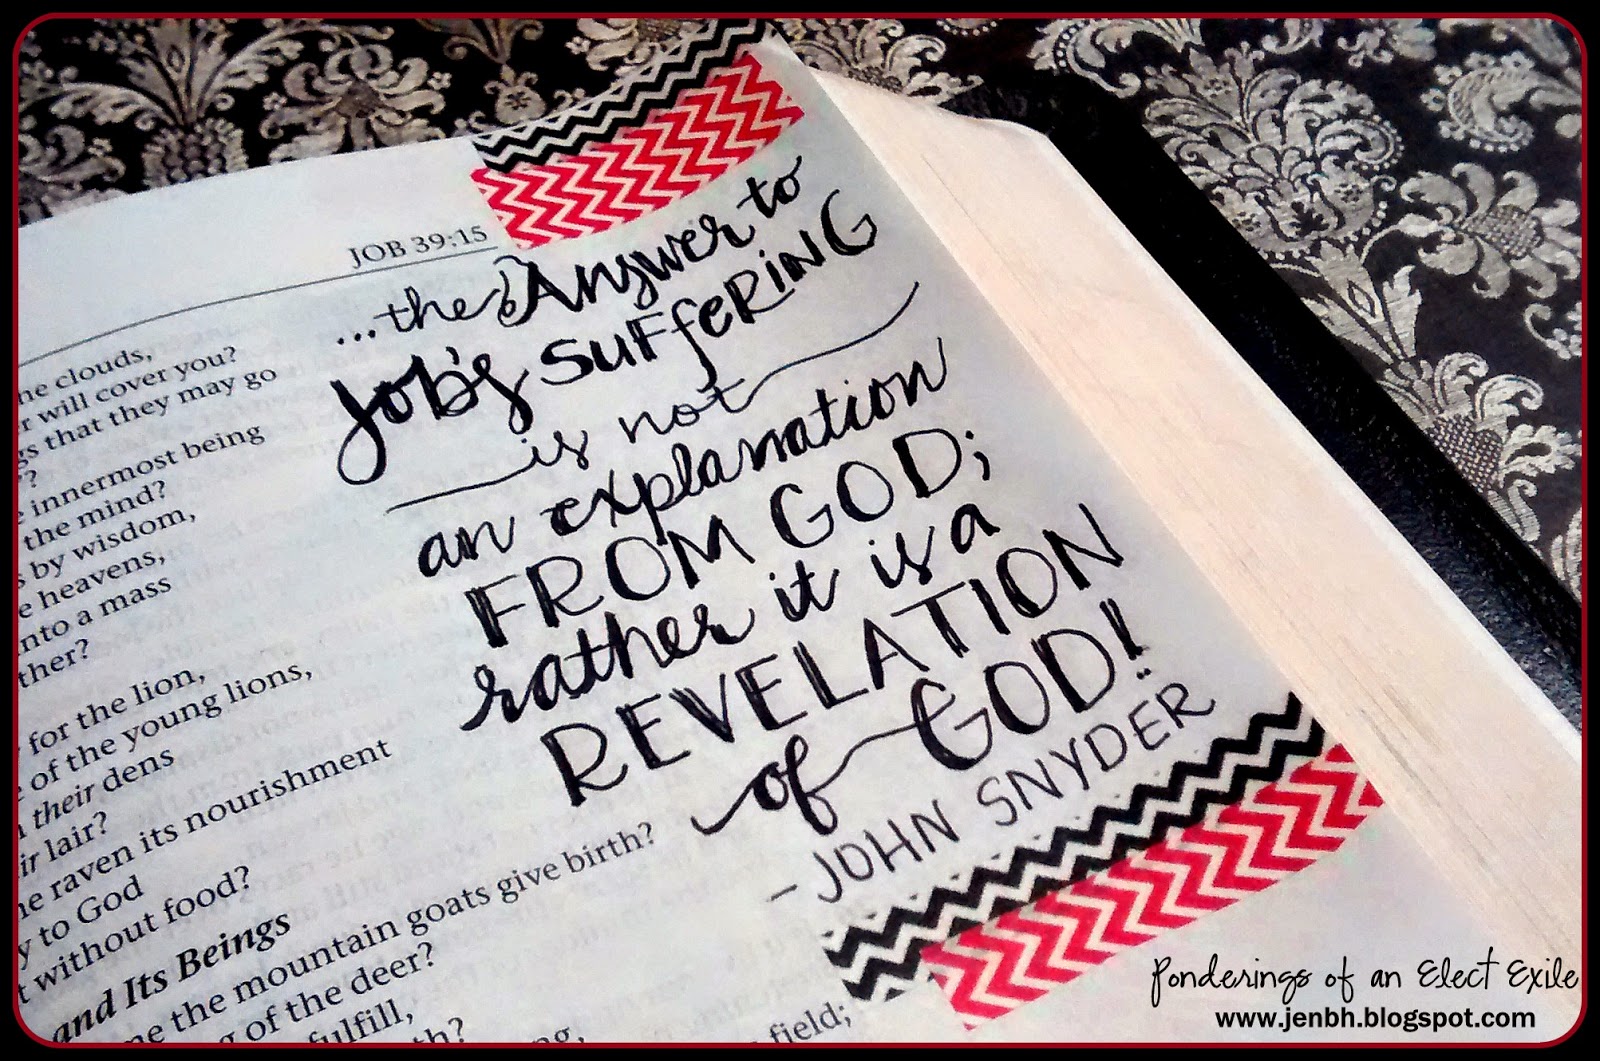 JOB 39:15
...the Answer to
Job's SUFFERING
is not
an explanation
FROM GOD;
rather it is a
REVELATION
of GOD!
-JOHN SNYDER
clouds,
will cover you?
that they may go
?
innermost being
the mind?
by wisdom,
heavens,
into a mass
for the lion,
of the young lions,
their dens
lair?
raven its nourishment
to God
without food?
and Its Beings
the mountain goats give birth?
of the deer?
fulfill,
field;
Ponderings of an Elect Exile
www.jenbh.blogspot.com